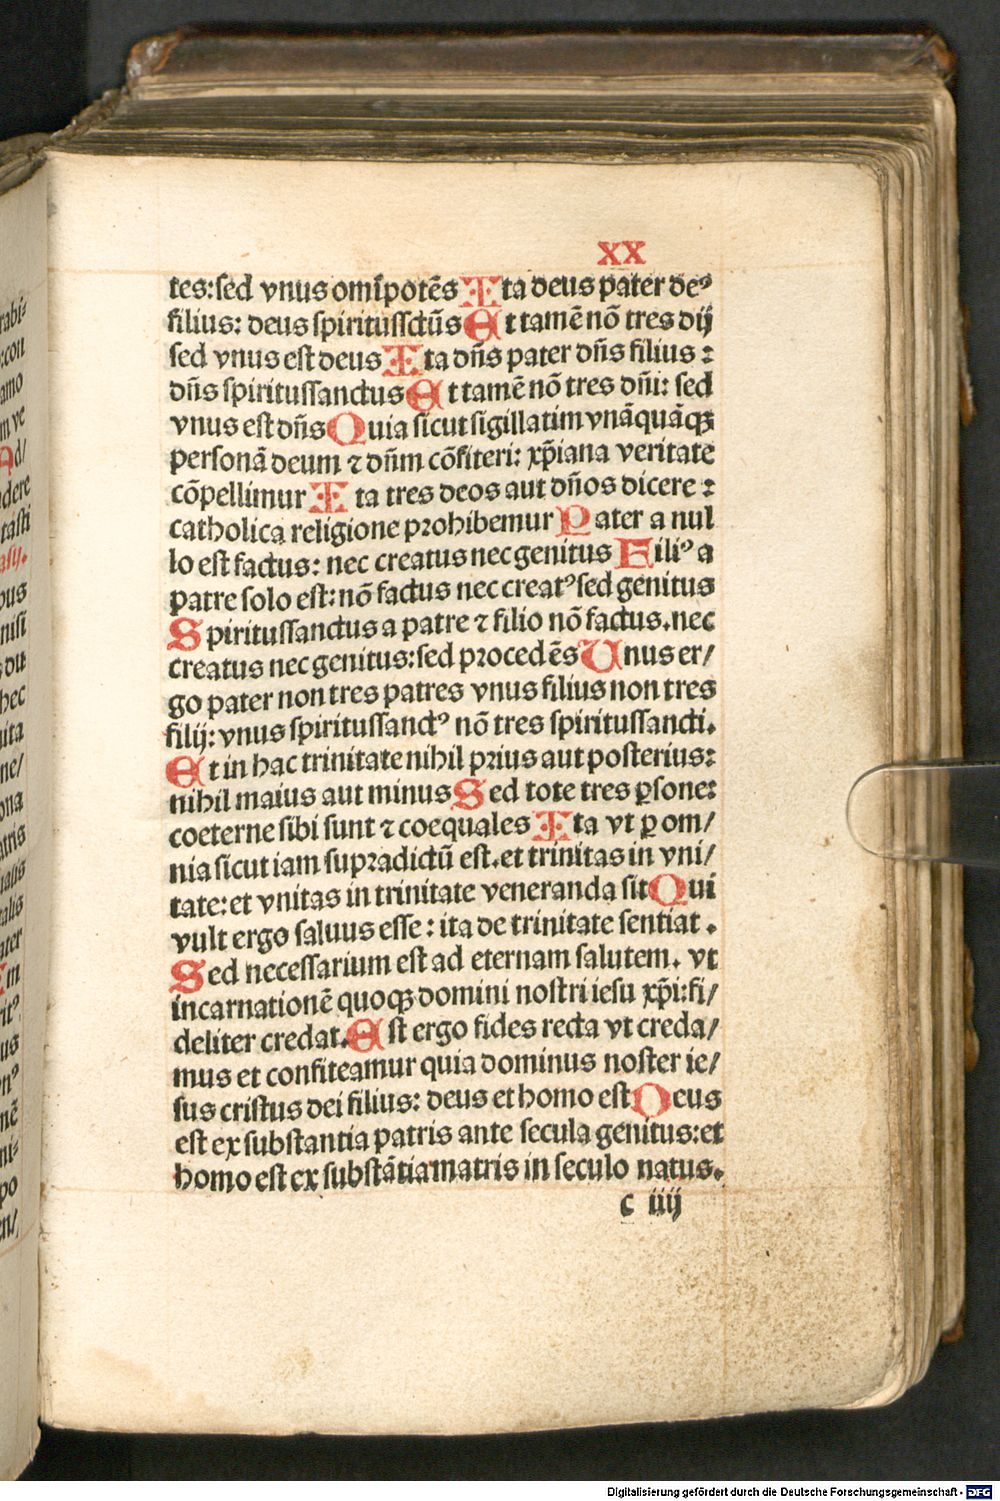 XX
tes: sed vnus omīpotēs Ita deus pater deꝰ
filius: deus spiritussctūs Et tamē nō tres dij
sed vnus est deus Ita dn̄s pater dn̄s filius :
dn̄s spiritussanctus Et tamē nō tres dn̄i: sed
vnus est dn̄s Quia sicut sigillatim vnāquāqꝫ
personā deum ⁊ dn̄m cōfiteri: xp̄iana veritate
cōpellimur Ita tres deos aut dn̄os dicere :
catholica religione prohibemur Pater a nul
lo est factus: nec creatus nec genitus Filiꝰ a
patre solo est: nō factus nec creatꝰ sed genitus
Spiritussanctus a patre ⁊ filio nō factus. nec
creatus nec genitus: sed procedēs Unus er/
go pater non tres patres vnus filius non tres
filij: vnus spiritussanctꝰ nō tres spiritussancti.
Et in hac trinitate nihil prius aut posterius:
nihil maius aut minus Sed tote tres ꝑsone:
coeterne sibi sunt ⁊ coequales Ita vt ꝑ om/
nia sicut iam supradictū est. et trinitas in vni/
tate: et vnitas in trinitate veneranda sit Qui
vult ergo saluus esse : ita de trinitate sentiat .
Sed necessarium est ad eternam salutem. vt
incarnationē quoqꝫ domini nostri iesu xp̄i: fi/
deliter credat. Est ergo fides recta vt creda/
mus et confiteamur quia dominus noster ie/
sus cristus dei filius: deus et homo est Deus
est ex substantia patris ante secula genitus: et
homo est ex substātia matris in seculo natus.
c iiij
rabi⸗
:con
amo
m ve
Ad/
dere
tasti
asy.
ous
nisi
hec
ita
ne/
ona
atris
ualis
ater
us
nē
ni⸗
po
en/
Digitalisierung gefördert durch die Deutsche Forschungsgemeinschaft - DFG